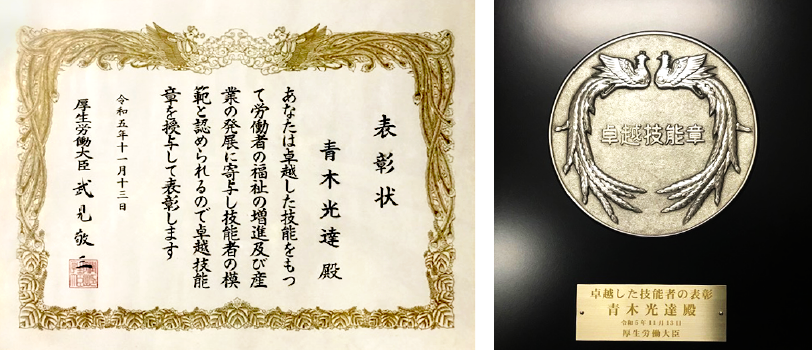 表彰状
青木光達 殿
あなたは卓越した技能をもつ
て労働者の福祉の増進及び産
業の発展に寄与し技能者の模
範と認められるので卓越技能
章を授与して表彰します
令和五年十一月十三日
厚生労働大臣 武見敬三
卓越技能章
卓越した技能者の表彰
青木光達殿
令和5年11月13日
厚生労働大臣